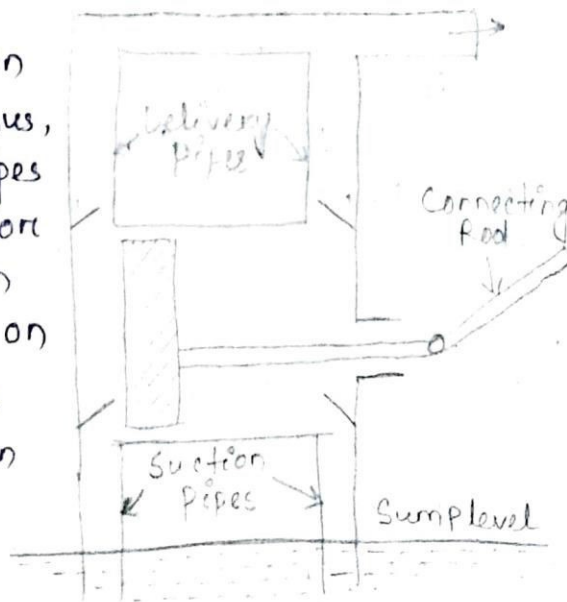 n
us,
pes
ore
n
on
n
Delivery
pipes
Connecting
Rod
Suction
pipes
Sumplevel